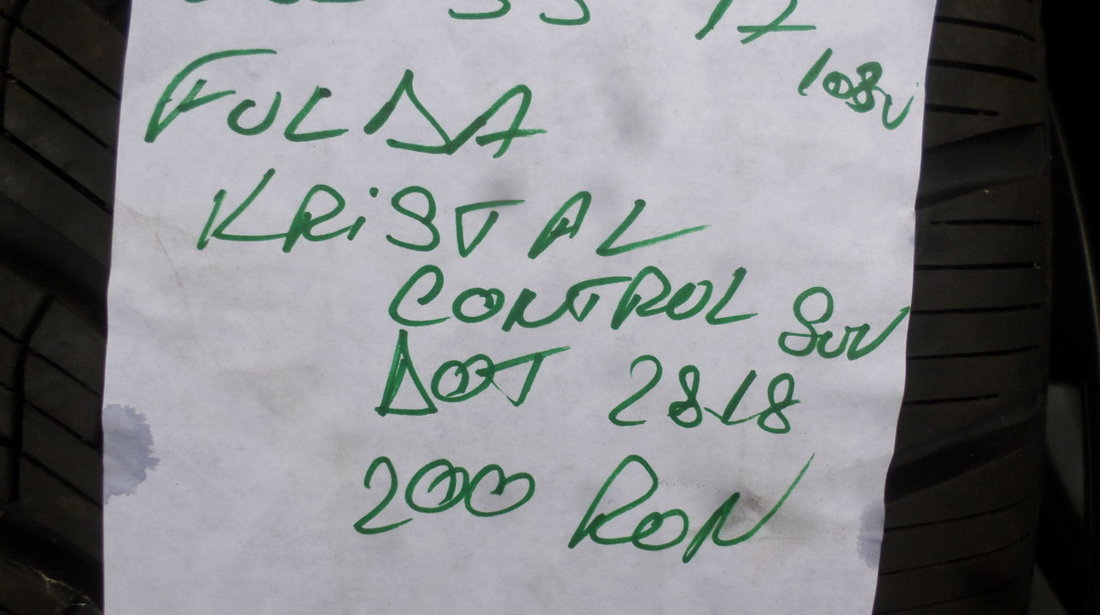 55 17
108V
FULDA
KRiSTAL
CONTROL SUV
DOT 2818
200 RON